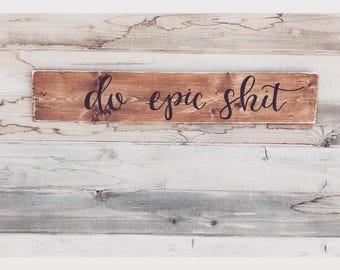 do epic shit